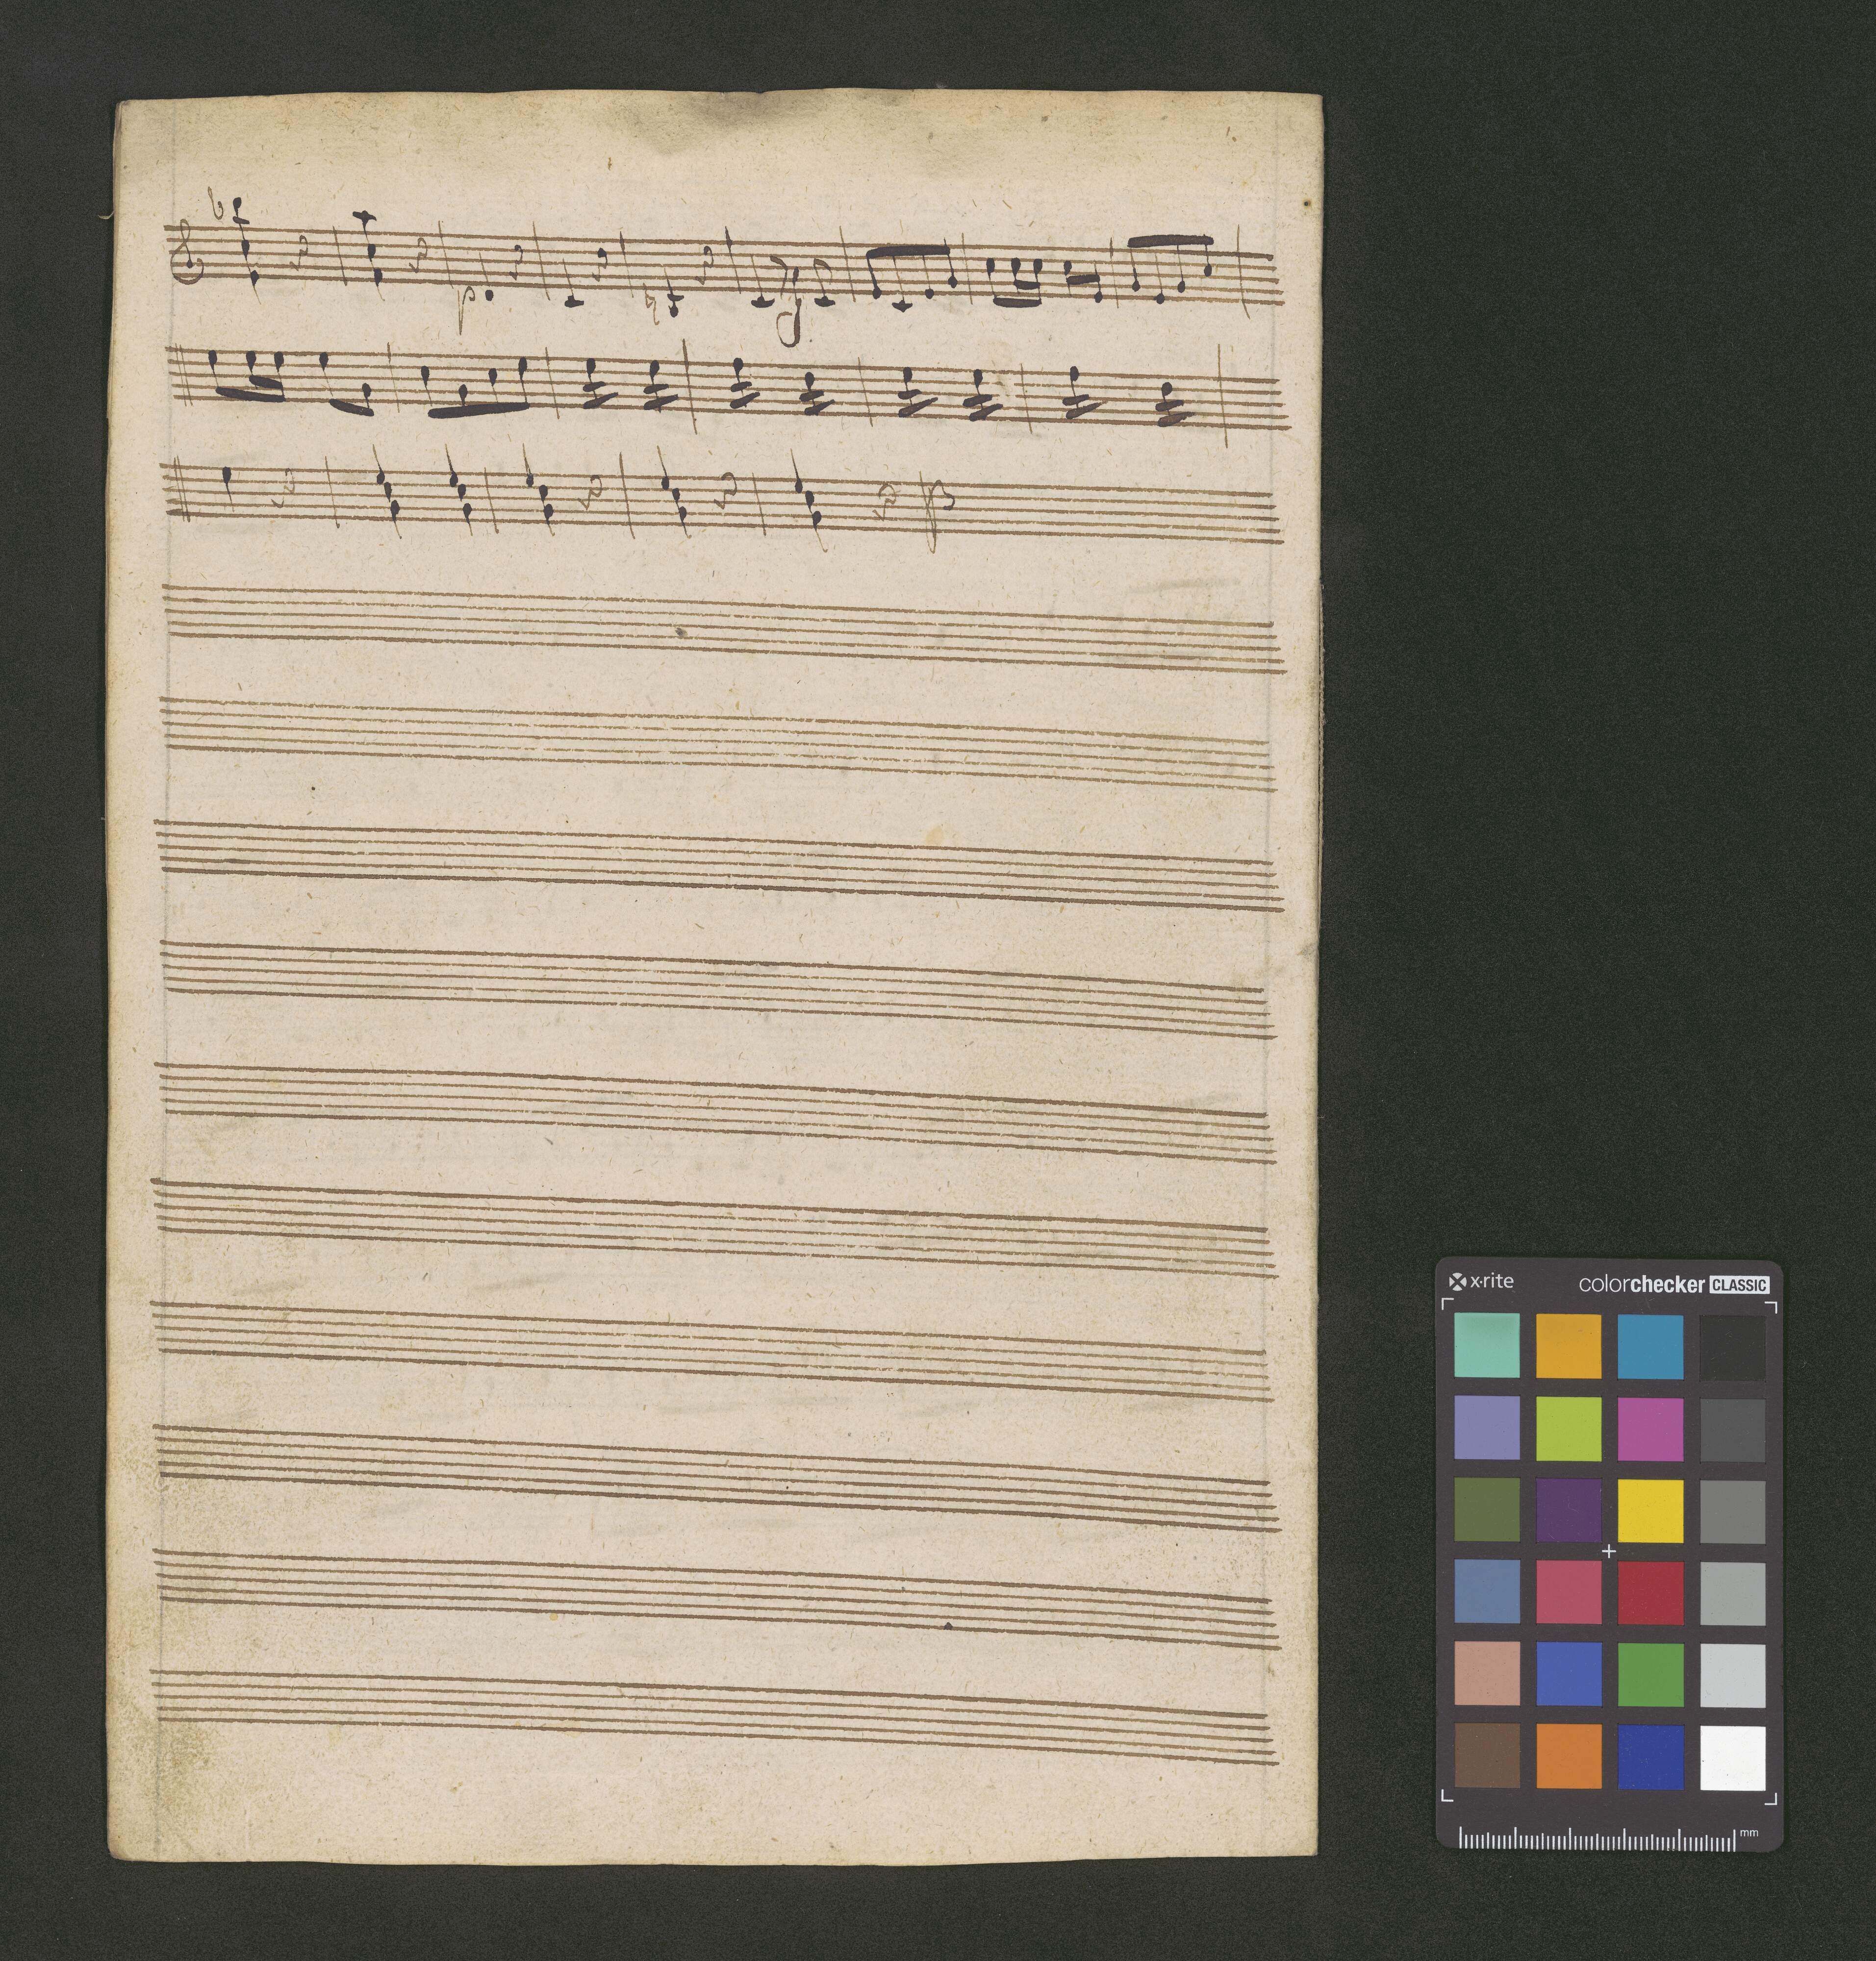 p
f
x·rite colorchecker CLASSIC
mm